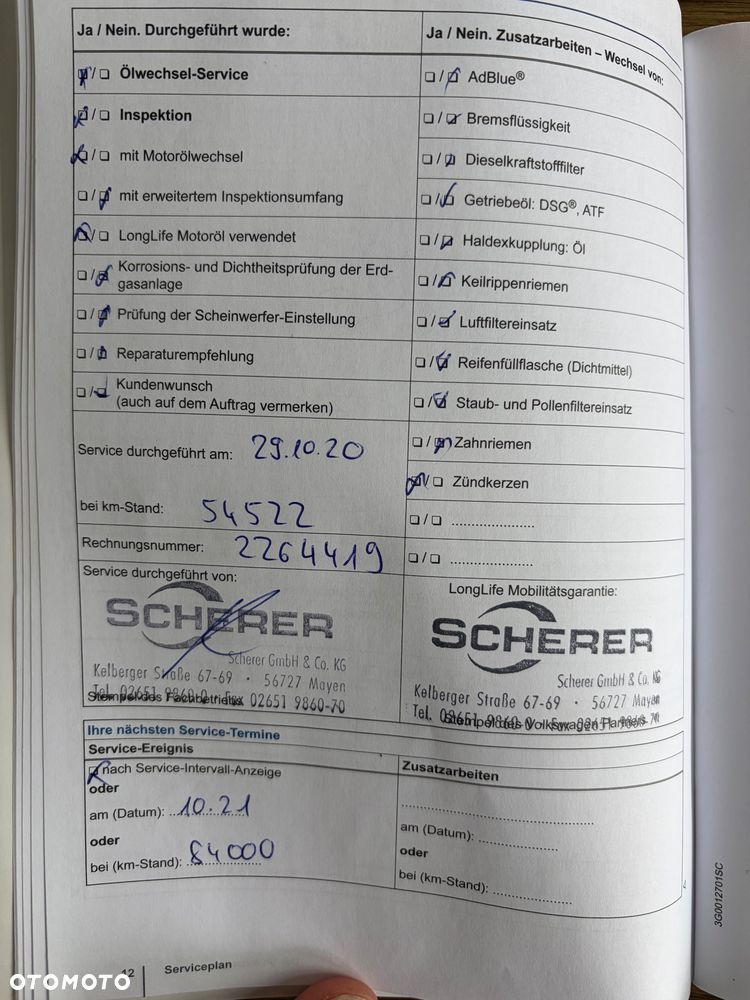 Ja / Nein. Durchgeführt wurde:
❏/❏ Ölwechsel-Service
❏/❏ Inspektion
❏/❏ mit Motorölwechsel
❏/❏ mit erweitertem Inspektionsumfang
❏/❏ LongLife Motoröl verwendet
❏/❏ Korrosions- und Dichtheitsprüfung der Erd-
gasanlage
❏/❏ Prüfung der Scheinwerfer-Einstellung
❏/❏ Reparaturempfehlung
❏/❏ Kundenwunsch
(auch auf dem Auftrag vermerken)
Service durchgeführt am: 29.10.20
bei km-Stand: 54522
Rechnungsnummer: 2264419
Service durchgeführt von:
SCHERER
Scherer GmbH & Co. KG
Kelberger Straße 67-69 · 56727 Mayen
Tel. 02651 9860-0 · Fax 02651 9860-70
Stempel des Fachbetriebs
Ja / Nein. Zusatzarbeiten – Wechsel von:
❏/❏ AdBlue®
❏/❏ Bremsflüssigkeit
❏/❏ Dieselkraftstofffilter
❏/❏ Getriebeöl: DSG®, ATF
❏/❏ Haldexkupplung: Öl
❏/❏ Keilrippenriemen
❏/❏ Luftfiltereinsatz
❏/❏ Reifenfüllflasche (Dichtmittel)
❏/❏ Staub- und Pollenfiltereinsatz
❏/❏ Zahnriemen
❏/❏ Zündkerzen
❏/❏ .....................
❏/❏ .....................
LongLife Mobilitätsgarantie:
SCHERER
Scherer GmbH & Co. KG
Kelberger Straße 67-69 · 56727 Mayen
Tel. 02651 9860-0 · Fax 02651 9860-70
Stempel des Volkswagen Partners
Ihre nächsten Service-Termine
Service-Ereignis
❏ nach Service-Intervall-Anzeige
oder
am (Datum): 10.21
oder
bei (km-Stand): 84000
Zusatzarbeiten
am (Datum): ....................
oder
bei (km-Stand): ....................
12 Serviceplan
3G0012701SC
OTOMOTO